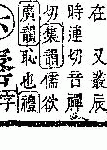 在又叢辰
時連切音禪
切集韻儒欲
廣韻恥也禮